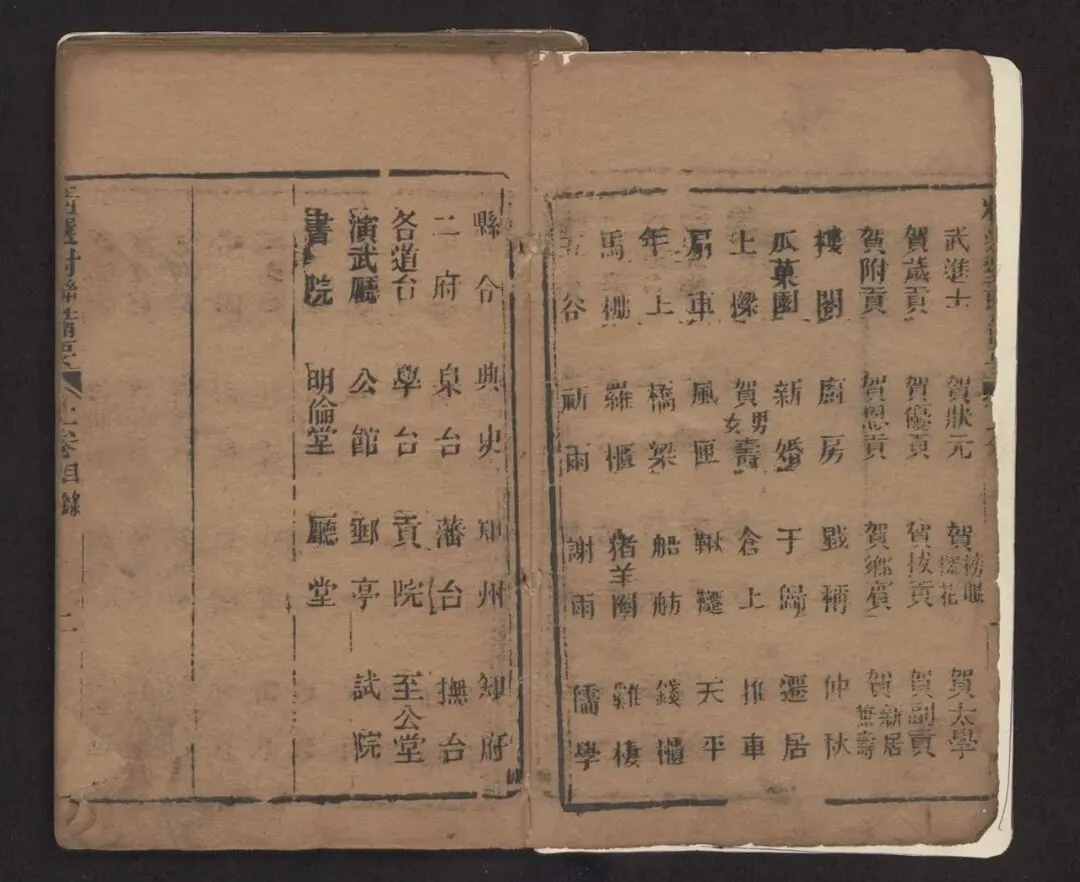 武進士 賀狀元 賀榜眼探花 賀太學
賀歲貢 賀優貢 賀拔貢 賀副貢
賀附貢 賀恩貢 賀鄉賓 賀新居兼壽
樓閣 廚房 戥稱 仲秋
瓜菓園 新婚 于歸 遷居
上樑 賀男女壽 倉上 推車
扇車 風匣 鞦韆 天平
年上 橋梁 船舫 錢櫃
馬棚 羅櫃 猪羊圈 雞棲
五谷 祈雨 謝雨 儒學
縣令 典史 知州 知府
二府 臬台 藩台 撫台
各道台 學台 貢院 至公堂
演武廳 公館 郵亭 試院
書院 明倫堂 廳堂
對聯 上卷目錄 二